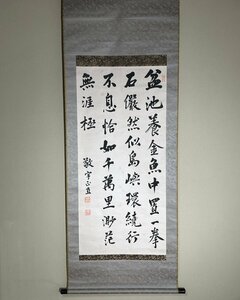 盆池養金魚中置一拳
石儼然似島嶼環繞行
不息恰如千萬里渺茫
無涯極
敬宇正直